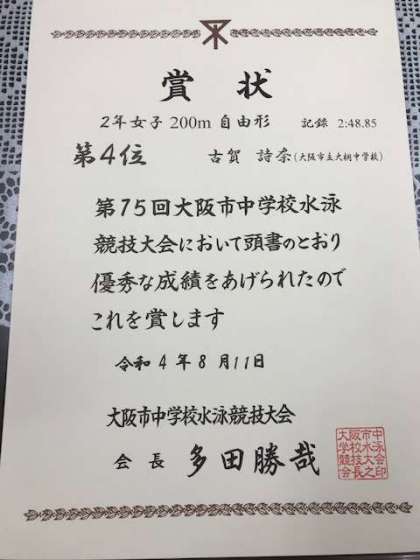 賞状
2年女子 200m 自由形 記録 2:48.85
第4位 古賀 詩奈(大阪市立大桐中学校)
第75回大阪市中学校水泳
競技大会において頭書のとおり
優秀な成績をあげられたので
これを賞します
令和4年8月11日
大阪市中学校水泳競技大会
会長 多田勝哉
大阪市中
学校水泳
競技大会
会長之印